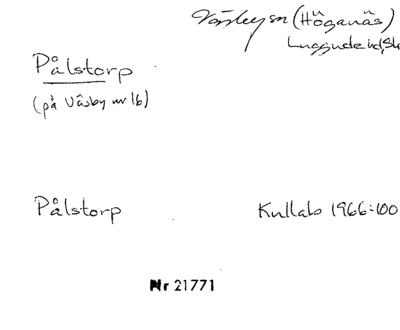 Väsby sn (Höganäs)
Luggude hd, Sk
Pålstorp
(på Väsby nr 16)
Pålstorp Kullabo 1966:100
Nr 21771